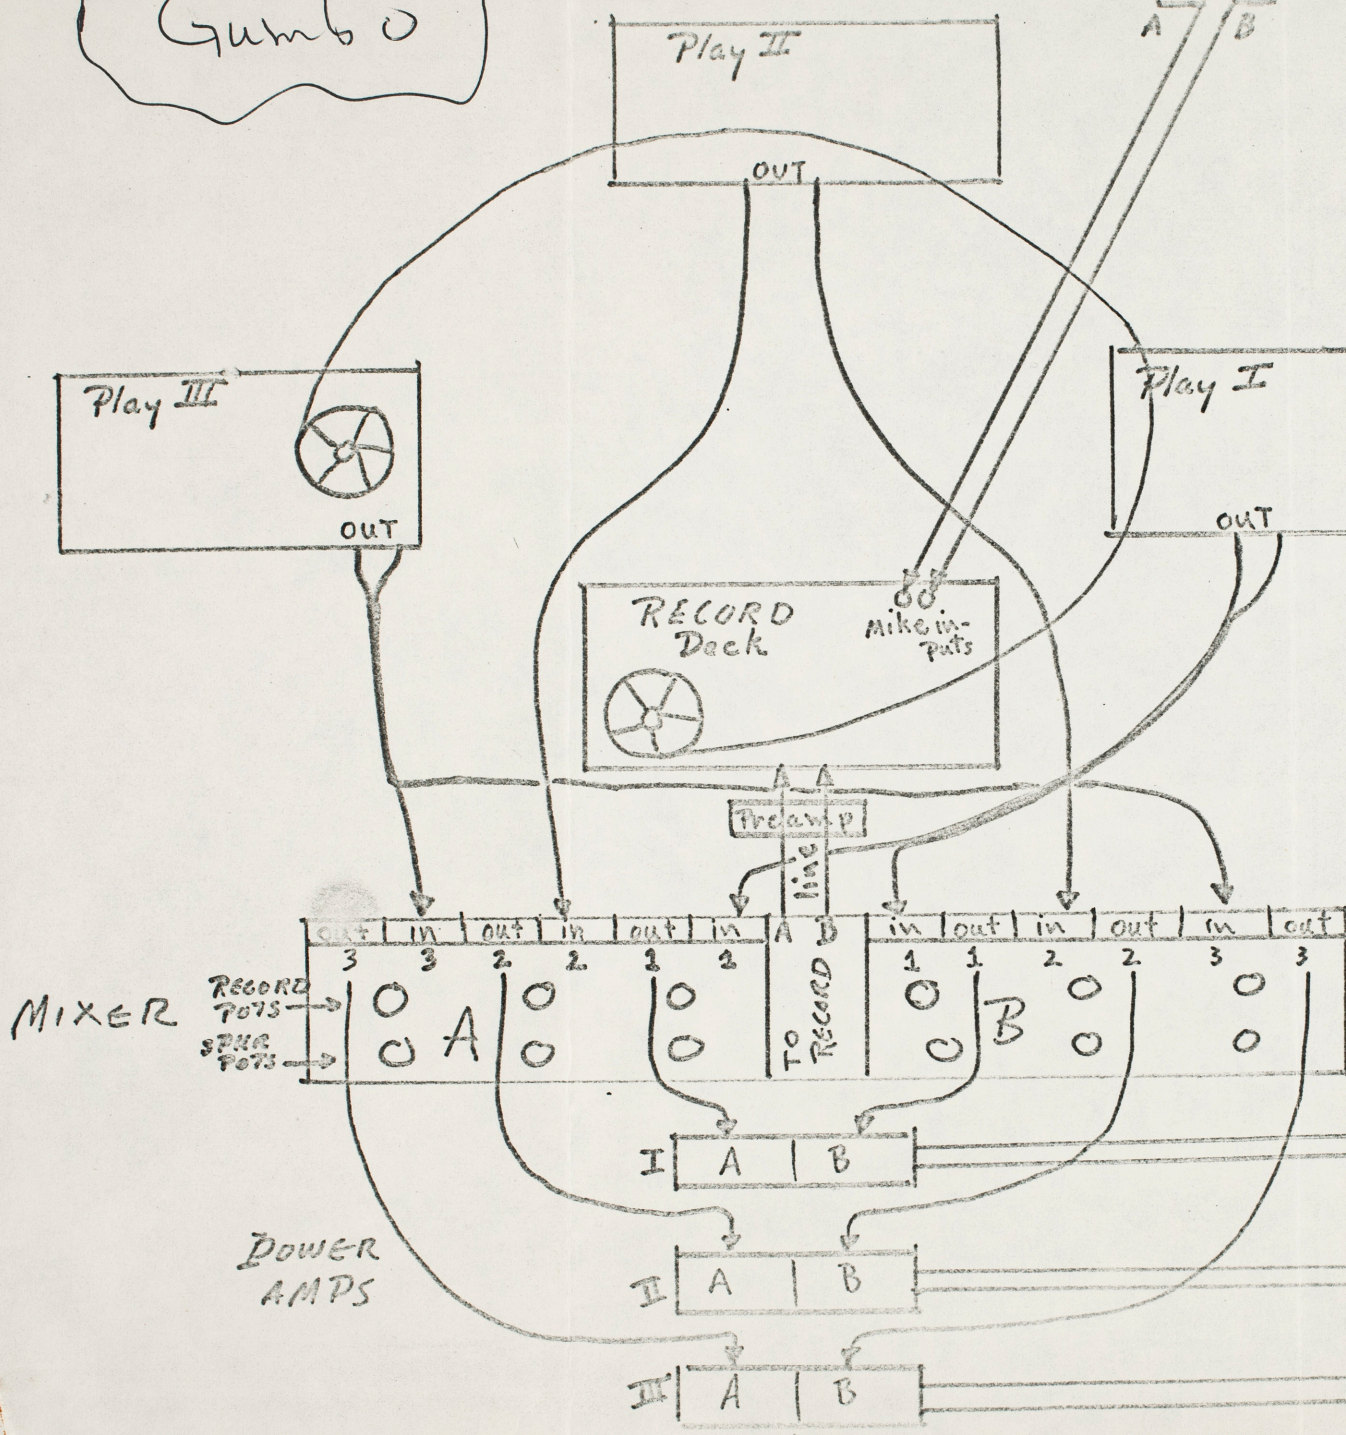 Gumbo
A B
Play II
OUT
Play III
OUT
Play I
OUT
RECORD
Deck
Mike in-
puts
Preamp
line
out in out in out in A B in out in out in out
3 3 2 2 1 1 1 1 2 2 3 3
TO
RECORD
MIXER
RECORD
POTS
SPKR
POTS
A
B
I A B
POWER
AMPS
II A B
III A B